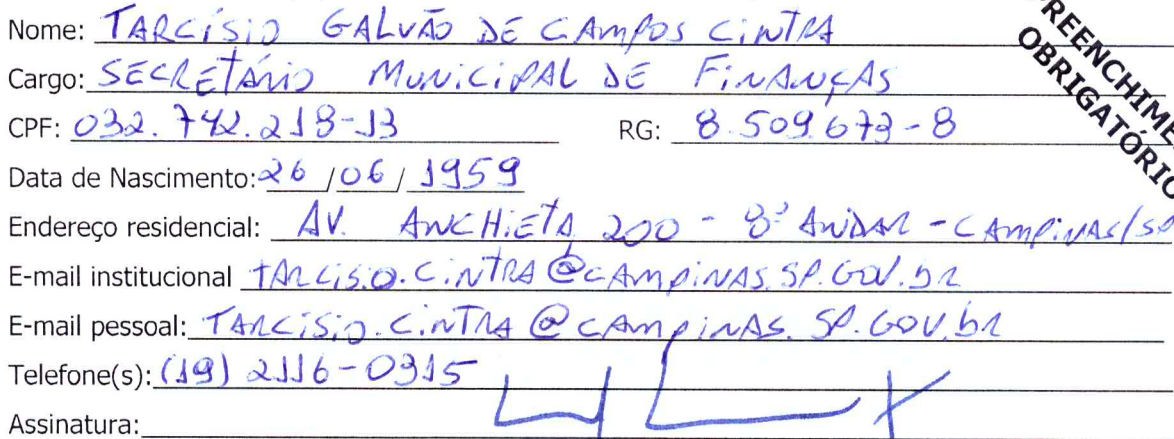 Nome: TARCÍSIO GALVÃO DE CAMPOS CINTRA
Cargo: SECRETÁRIO MUNICIPAL DE FINANÇAS
CPF: 032.742.218-13 RG: 8.509.673-8
Data de Nascimento: 26 / 06 / 1959
Endereço residencial: AV. ANCHIETA 200 - 8º ANDAR - CAMPINAS/SP
E-mail institucional TARCISIO.CINTRA@CAMPINAS.SP.GOV.BR
E-mail pessoal: TARCISIO.CINTRA@CAMPINAS.SP.GOV.br
Telefone(s): (19) 2116-0315
Assinatura:
OBRIGATÓRIO